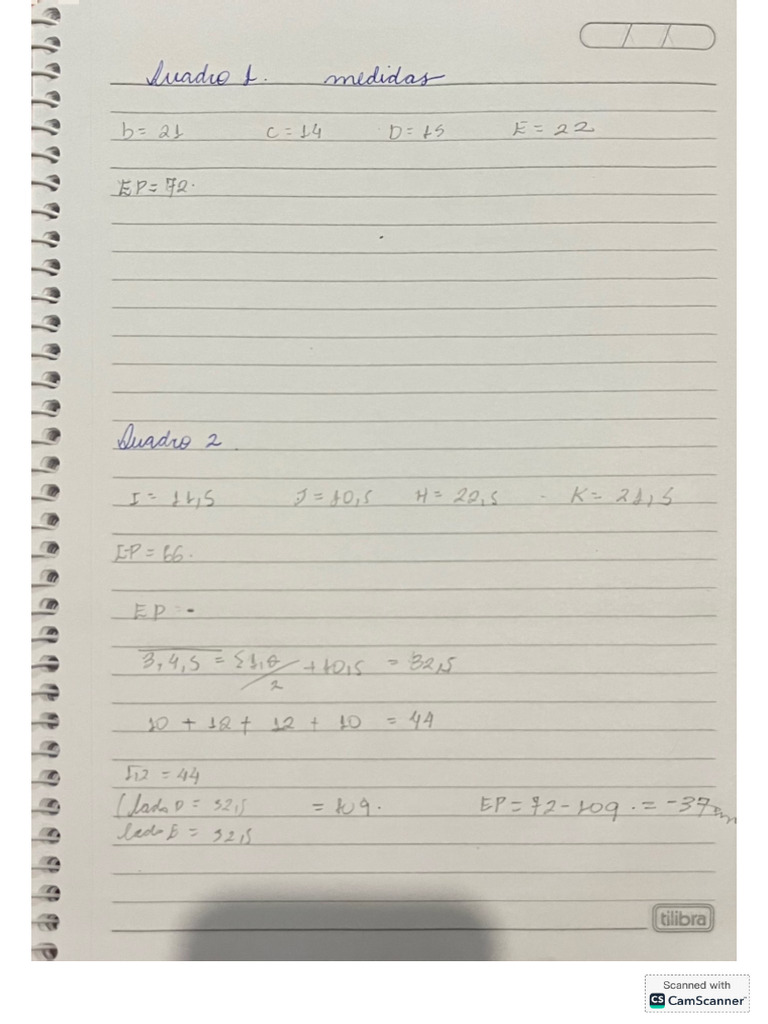 Quadro 1. medidas
b = 21 C = 14 D = 15 E = 22
EP = 72.
Quadro 2.
I = 11,5 J = 10,5 H = 22,5 - K = 21,5
I-P = 66.
EP = -
3,4,5 = 51,0/2 + 10,5 = 32,5
10 + 12 + 12 + 10 = 44
= 44
lado D = 32,5 = 109. EP = 72 - 109. = -37
lado E = 32,5
tilibra
Scanned with
CS CamScanner